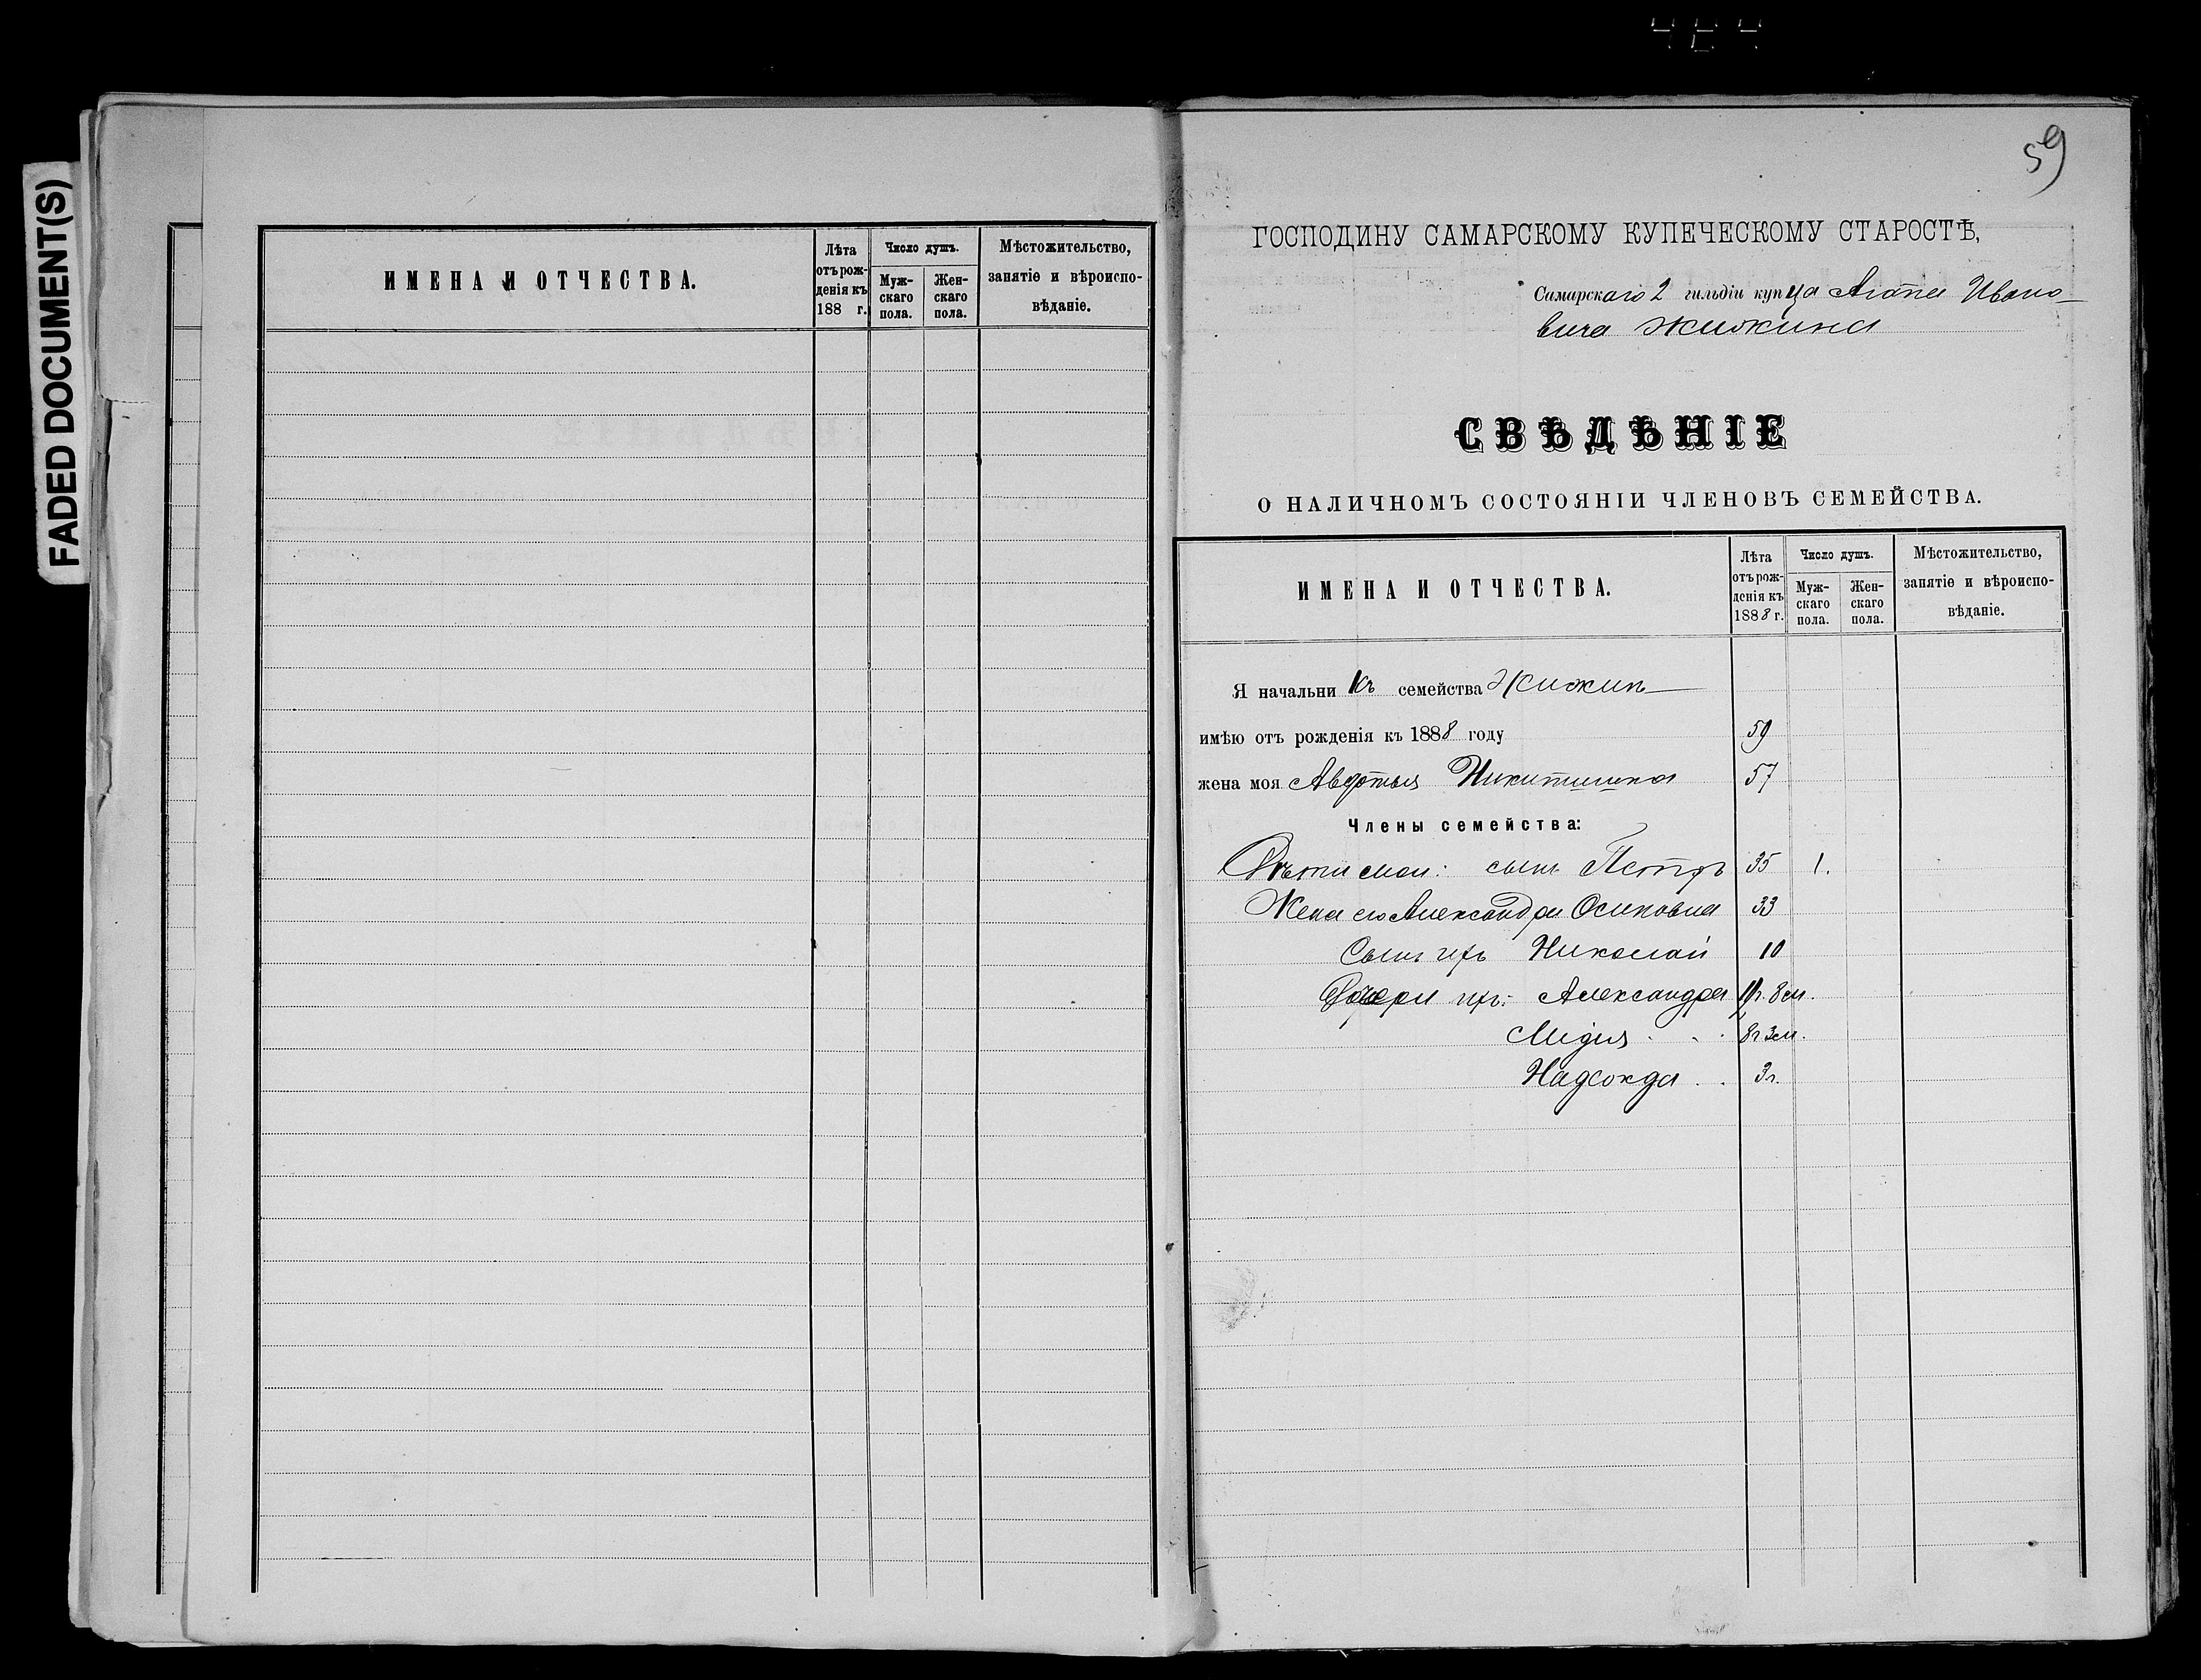 FADED DOCUMENT(S)
ИМЕНА И ОТЧЕСТВА.
Лѣта отъ рожденія къ 188 г.
Число душъ.
Мужскаго пола.
Женскаго пола.
Мѣстожительство, занятіе и вѣроисповѣданіе.
59
ГОСПОДИНУ САМАРСКОМУ КУПЕЧЕСКОМУ СТАРОСТѢ,
Самарскаго 2 гильдіи купца Агапа Ивано-
вича Жижина
СВѢДѢНІЕ
О НАЛИЧНОМЪ СОСТОЯНІИ ЧЛЕНОВЪ СЕМЕЙСТВА.
ИМЕНА И ОТЧЕСТВА.
Лѣта отъ рожденія къ 1888 г.
Число душъ.
Мужскаго пола.
Женскаго пола.
Мѣстожительство, занятіе и вѣроисповѣданіе.
Я начальникъ семейства Жижинъ
имѣю отъ рожденія къ 1888 году 59
жена моя Авдотья Никитишна 57
Члены семейства:
Дѣти мои: сынъ Петръ 35 1.
Жена его Александра Осиповна 33
Сынъ ихъ Николай 10
Дочери ихъ: Александра 11г. 8 м.
Лидия 8г 3 м.
Надежда 3г.